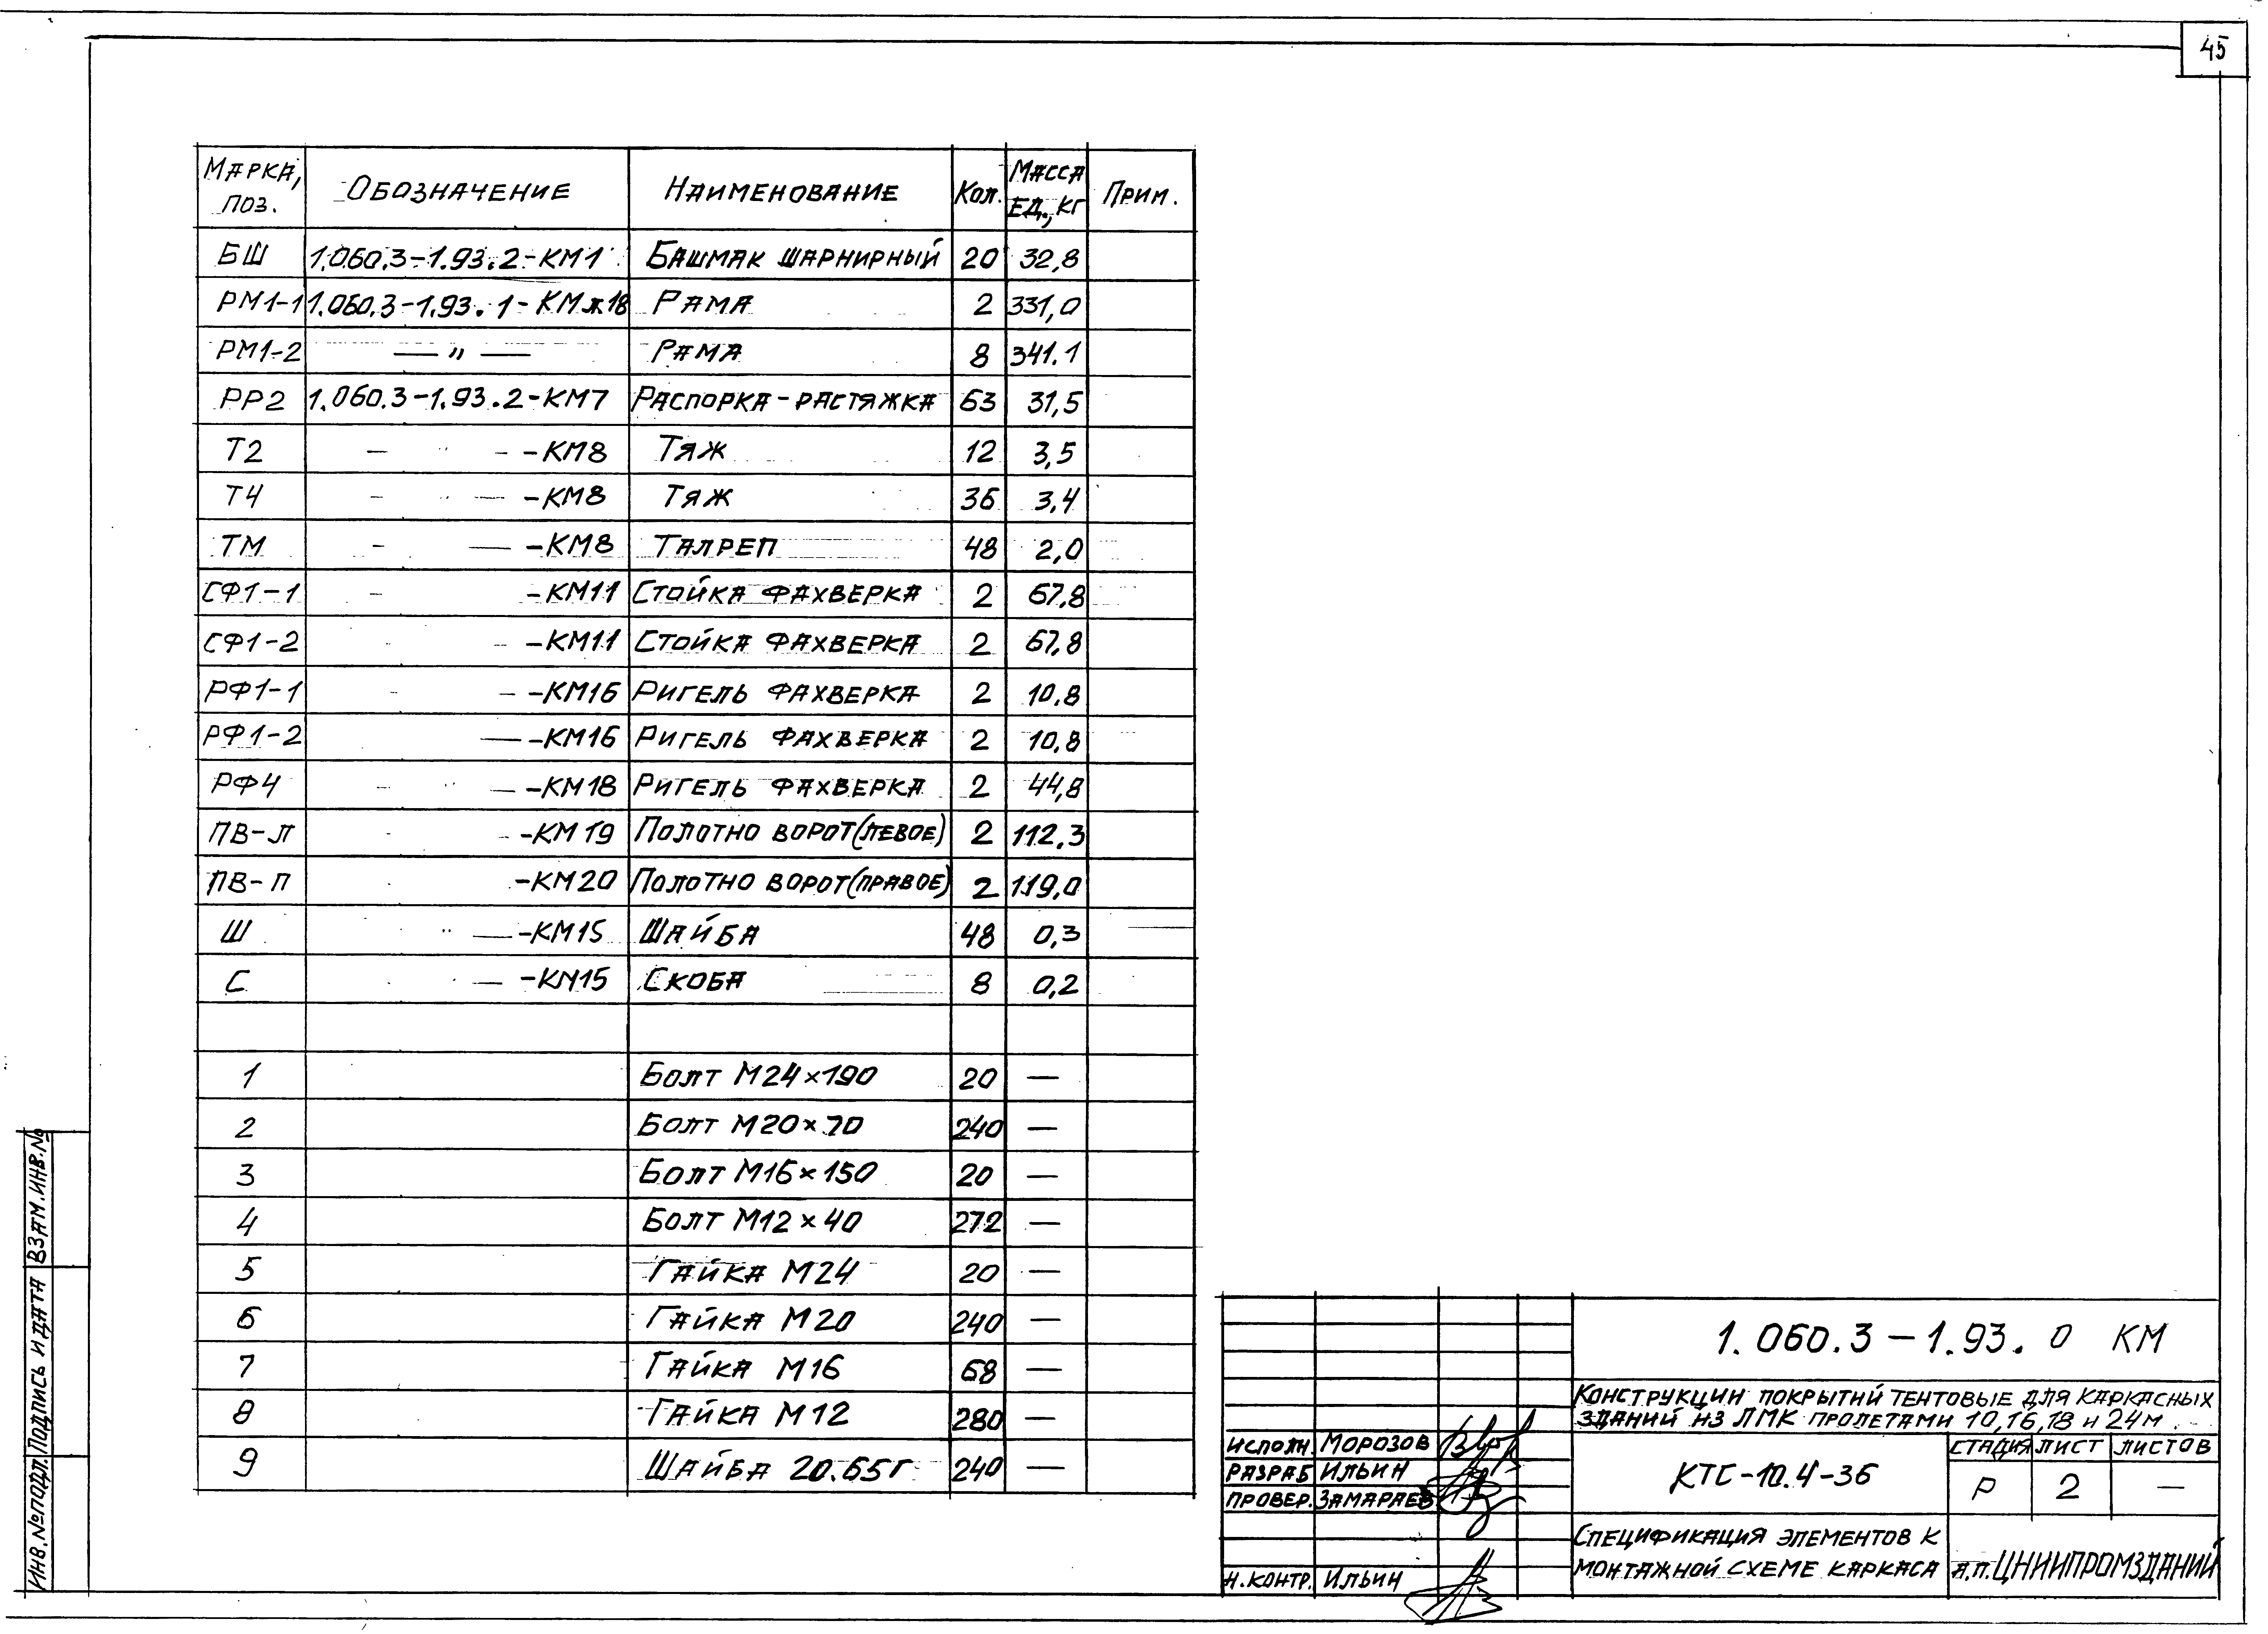 45
МАРКА, ПОЗ. ОБОЗНАЧЕНИЕ НАИМЕНОВАНИЕ КОЛ. МАССА ЕД., КГ ПРИМ.
БШ 1.060.3-1.93.2-КМ1 БАШМАК ШАРНИРНЫЙ 20 32,8
РМ1-1 1.060.3-1.93.1-КМл18 РАМА 2 331,0
РМ1-2 — " — РАМА 8 341.1
РР2 1.060.3-1.93.2-КМ7 РАСПОРКА-РАСТЯЖКА 63 31,5
Т2 - КМ8 ТЯЖ 12 3,5
Т4 - КМ8 ТЯЖ 36 3,4
ТМ - КМ8 ТАЛРЕП 48 2,0
СФ1-1 - КМ11 СТОЙКА ФАХВЕРКА 2 67,8
СФ1-2 - КМ11 СТОЙКА ФАХВЕРКА 2 67,8
РФ1-1 - КМ16 РИГЕЛЬ ФАХВЕРКА 2 10,8
РФ1-2 - КМ16 РИГЕЛЬ ФАХВЕРКА 2 10,8
РФ4 - КМ18 РИГЕЛЬ ФАХВЕРКА 2 44,8
ПВ-Л - КМ19 ПОЛОТНО ВОРОТ (ЛЕВОЕ) 2 112.3
ПВ-П - КМ20 ПОЛОТНО ВОРОТ (ПРАВОЕ) 2 119,0
Ш - КМ15 ШАЙБА 48 0,3
С - КМ15 СКОБА 8 0,2
1 БОЛТ М24×190 20 —
2 БОЛТ М20×70 240 —
3 БОЛТ М16×150 20 —
4 БОЛТ М12×40 272 —
5 ГАЙКА М24 20 —
6 ГАЙКА М20 240 —
7 ГАЙКА М16 68 —
8 ГАЙКА М12 280 —
9 ШАЙБА 20.65Г 240 —
ИНВ.№ПОДЛ. ПОДПИСЬ И ДАТА ВЗАМ.ИНВ.№
1.060.3-1.93.0 КМ
КОНСТРУКЦИИ ПОКРЫТИЙ ТЕНТОВЫЕ ДЛЯ КАРКАСНЫХ
ЗДАНИЙ ИЗ ЛМК ПРОЛЕТАМИ 10,16,18 И 24М
ИСПОЛН. МОРОЗОВ
РАЗРАБ ИЛЬИН
ПРОВЕР. ЗАМАРАЕВ
Н.КОНТР. ИЛЬИН
КТС-10.4-36
СТАДИЯ ЛИСТ ЛИСТОВ
Р 2 —
СПЕЦИФИКАЦИЯ ЭЛЕМЕНТОВ К
МОНТАЖНОЙ СХЕМЕ КАРКАСА
А.П. ЦНИИПРОМЗДАНИЙ